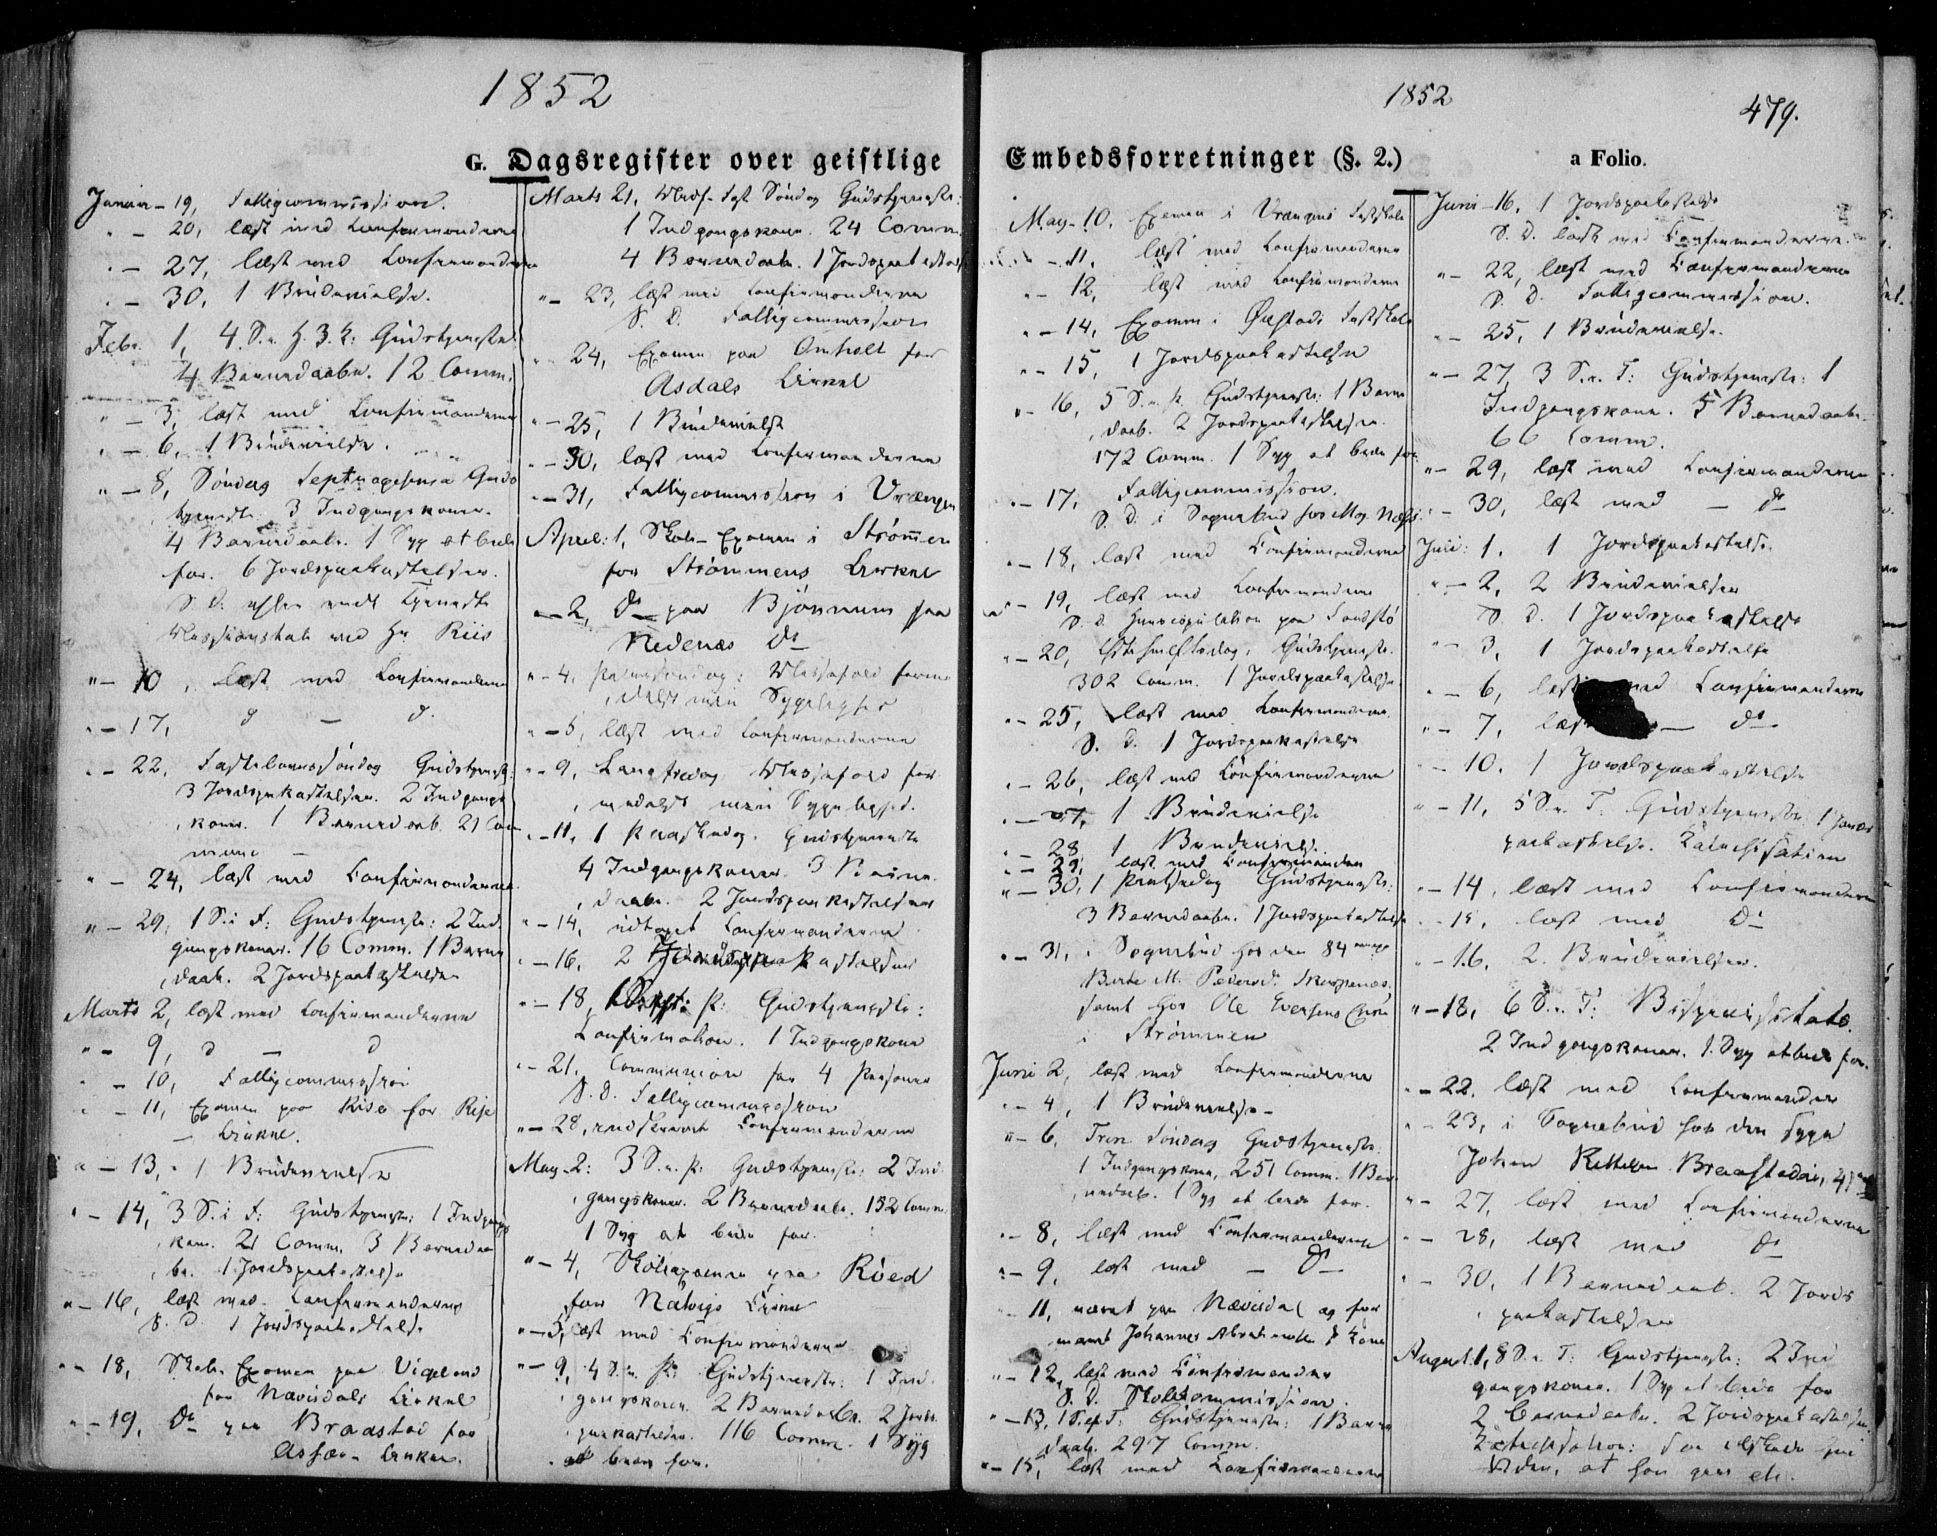 1852
G. Dagsregister over geistlige
Januar - 19, Fattigcommission.
" - 20, læst med Confirmanderne
" - 27, læst med Confirmanderne
" - 30, 1 Brudevielse.
Febr. 1, 4 S. e. H. 3. K: Gudstjeneste
4 Barnedaabe. 12 Comm.
" - 3, læst med Confirmanderne
" - 6, 1 Brudevielse.
" - 8, Søndag Septuagesima Guds
tjeneste. 3 Indgangskoner.
4 Barnedaabe. 1 Syg at bede
for. 6 Jordspaakastelser.
S. D. efter endt Tjeneste
med Hr Riis
" - 10, læst med Confirmanderne
" - 17, d - d.
" - 22, Fastelavnssøndag Gudstjeneste:
3 Jordspaakastelser. 2 Indgangs
koner. 1 Barnedaab. 21 Com
mune
" - 24, læst med Confirmanderne
" - 29, 1 S. i F: Gudstjeneste: 2 Ind
gangskoner. 16 Comm. 1 Barne
daab. 2 Jordspaakastelse
Marts 2, læst med Confirmanderne
" - 9, d - d
" - 10, Fattigcommission
" - 11, Examen paa Rise for Rise
Cirkel.
" - 13, 1 Brudevielse
" - 14, 3 S. i F: Gudstjeneste: 1 Indgangs
kone. 21 Comm. 3 Barnedaa
be. 1 Jordspaakastelse
" - 16, læst med Confirmanderne
S. D. 1 Jordspaakastelse
" - 18, Skole-Examen paa Vigeland
for Nævisdals Cirkel
" - 19, Do paa Braastad for
Assæv-Cirkel.
Marts 21, Søndag Gudstjeneste:
1 Indgangskone. 24 Comm.
4 Barnedaabe. 1 Jordspaakastelse
" - 23, læst med Confirmanderne
S. D. Fattigcommission
" - 24, Examen paa Omholt for
Asdals Cirkel
" - 25, 1 Brudevielse
" - 30, læst med Confirmanderne
" - 31, Fattigcommission i Vrængen
April: 1, Skole-Examen i Strømmen
for Strømmens Cirkel
" - 2, Do paa Bjønnum for
Nedenæs Do
" - 4, Palmesøndag: Messefald forme
delst min Sygelighed
" - 5, læst med Confirmanderne
" - 9, Langfredag Messefald for
medelst min Sygelighed.
" - 11, 1 Paaskedag. Gudstjeneste
4 Indgangskoner. 3 Barne
daabe. 2 Jordspaakastelser
" - 14, Confirmanderne
" - 16, 2 Jordspaakastelser
" - 18, 1 S. e. P: Gudstjeneste:
Confirmation. 1 Indgangskone
" - 21, Communion for 4 Personer
S. D. Fattigcommission
" - 28, indskrevet Confirmanderne
May - 2: 3 S. e. P: Gudstjeneste: 2 Ind
gangskoner. 2 Barnedaabe. 152 Comm.
1 Syg at bede for.
" - 4, Skoleexamen paa Røed
for Natvigs Cirkel
" - 5, læst med Confirmanderne
" - 9, 4 S. e. P: Gudstjeneste: 1 Ind
gangskone. 2 Barnedaabe. 2 Jords
paakastelser. 116 Comm. 1 Syg
at bede for.
1852
479.
Embedsforretninger (§. 2.) a Folio.
May - 10. Examen i Vrængens Fastskole
" - 11. læst med Confirmanderne
" - 12, læst med Confirmanderne
" - 14, Examen i Øiestads Fastskole
" - 15, 1 Jordspaakastelse
" - 16, 5 S. e. P. Gudstjeneste: 1 Barne
daab. 2 Jordspaakastelser.
172 Comm. 1 Syg at bede for
" - 17, Fattigcommission.
S. D. i Sognebud hos
" - 18, læst med Confirmanderne
" - 19, læst med Confirmanderne
S. D. paa Sandstø
" - 20, Christi Himmelfartsdag. Gudstjeneste.
302 Comm. 1 Jordspaakastelse
" - 25, læst med Confirmanderne.
S. D. 1 Jordspaakastelse
" - 26, læst med Confirmanderne
" - 27, 1 Brudevielse
" - 28 1 Brudevielse.
" - 29, læst med Confirmanderne
" - 30, 1 Pintsedag Gudstjeneste:
3 Barnedaabe. 1 Jordspaakastelse
" - 31, i Sognebud hos den 84 aarige
Berte M. Pedersd.
samt hos Ole Evensens Enke
i Strømmen
Juni 2, læst med Confirmanderne
" - 4, 1 Brudevielse -
" - 6, Trin. Søndag Gudstjeneste:
1 Indgangskone, 251 Comm. 1 Bar
nedaab. 1 Syg at bede for.
" - 8, læst med Confirmanderne
" - 9, læst med - Do
" - 11, været paa Nævisdal og for
manet Johannes Abrahamsen & Kone
" - 12, læst med Confirmander
S. D. Skolekommission.
" - 13, 1 S. e. T: Gudstjeneste: 1 Barne
daab. 297 Comm.
" - 15, læst med Confirmanderne
Juni - 16, 1 Jordspaakastelse
S. D. læst med Confirmanderne.
" - 22, læst med Confirmanderne
S. D. Fattigcommission.
" - 25, 1 Brudevielse.
" - 27, 3 S. e. T: Gudstjeneste: 1
Indgangskone. 5 Barnedaabe.
66 Comm.
" - 29, læst med Confirmanderne
- 30, læst med - Do
Juli: 1. 1 Jordspaakastelse.
" - 2, 2 Brudevielser
S. D. 1 Jordspaakastelse
" - 3, 1 Jordspaakastelse
" - 6, læst med Confirmanderne
" - 7, læst - Do
- 10. 1 Jordspaakastelse
" - 11, 5 S. e. T. Gudstjeneste. 1 Jords
paakastelse. Katechisation
" - 14, læst med Confirmanderne
" - 15, læst med Do
" - 16, 2. Brudevielser.
" - 18, 6 S. e. T: Bispevisitats.
2 Indgangskoner. 1 Syg at bede for.
" - 22. læst med Confirmander
" - 23, i Sognebud hos den syge
Johan Kittelsen Braastadøi, 41
" - 27, læst med Confirmanderne
" - 28, læst med Do
" - 30, 1 Barnedaab. 2 Jords
paakastelser
August: 1, 8 S. e. T: Gudstjeneste: 2 Ind
gangskoner. 1 Syg at bede for
2 Barnedaabe. 2 Jordspaakastelser.
Katechisation:
at han gaar etc.